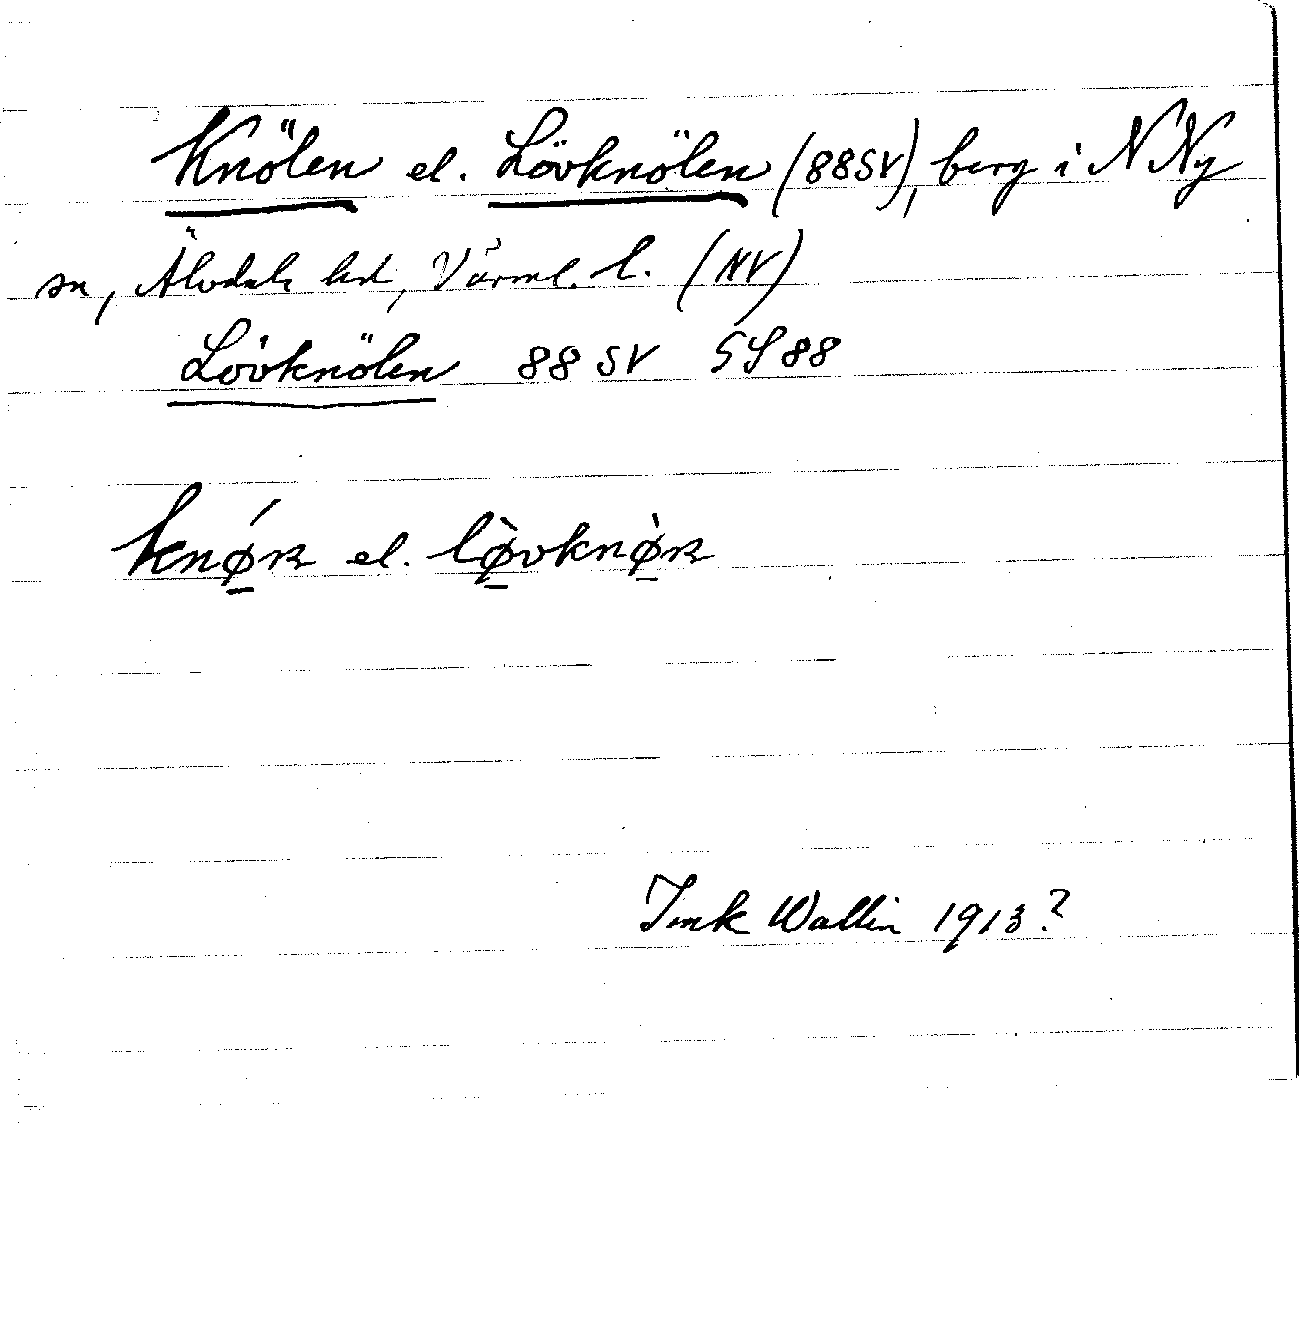 Knölen el. Lövknölen (88SV), berg i N Ny
sn, Älvdals hd, Värml. l. (NV)
Lövknölen 88 SV SS 88
knǿ̲n el. lø̲̀vknø̲̀n
Wallin 1913?